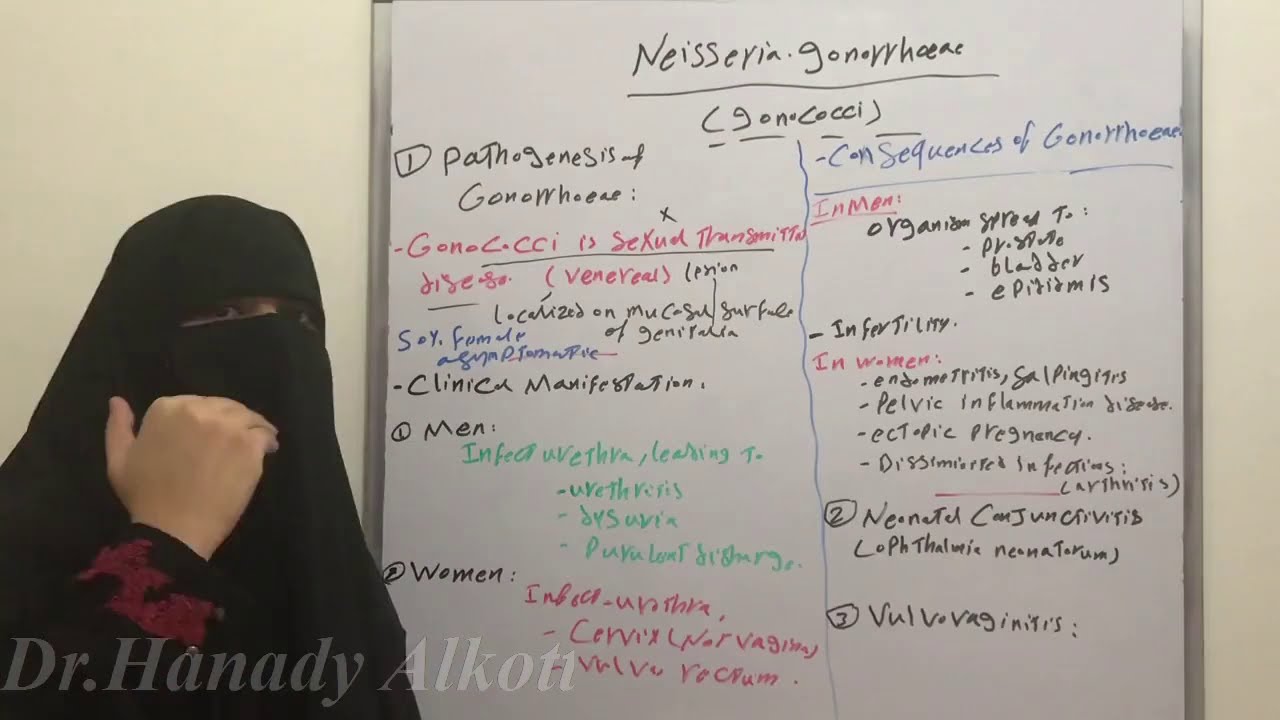 Neisseria. gonorrhoeae
(gonococci)
① Pathogenesis of
Gonorrhoeae:
x
- Gonococci is sexual transmitted
disease. (venereal) lesion
localized on mucosal surface
of genitalia
50%. female
asymptomatic
- Clinical Manifestation.
① Men:
Infect urethra, leading to
- urethritis
- dysuria
- Purulent discharge.
② Women:
Infect-urethra,
- Cervix (Not vagina)
- Vulva rectum.
- Consequences of Gonorrhoeae
In Men:
organism spread to:
- prostate
- bladder
- epididmis
- Infertility.
In women:
- endometritis, salpingitis
- Pelvic inflammation disease.
- ectopic pregnancy.
- infections:
(arthritis)
② Neonatal Conjunctivitis
(ophthalmia neonatorum)
③ Vulvovaginitis:
Dr.Hanady Alkoti